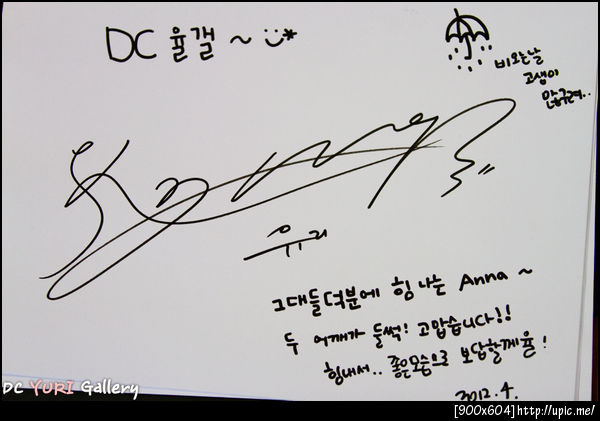 DC 율갤 ~
비오는날
고생이
많구려..
유리
그대들덕분에 힘 나는 Anna ~
두 어깨가 들썩! 고맙습니다!!
힘내서.. 좋은모습으로 보답할께율!
2012.4.
DC YURI Gallery
[900x604]http://upic.me/